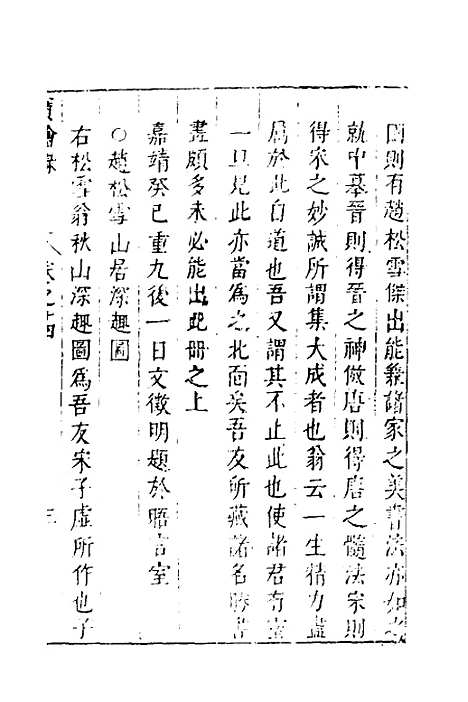 則有趙松雪傑出能兼諸家之美書法亦如之
就中摹晉則得晉之神倣唐則得唐之髓法宋則
得宋之妙誠所謂集大成者也翁云一生精力盡
於此自道也吾又謂其不止此也使諸君有
一旦見此亦當為之北面矣吾友所藏諸名勝書
畫頗多未必能出此冊之上
嘉靖癸巳重九後一日文徵明題於晤言室
○趙松雪山居深趣圖
右松雪翁秋山深趣圖為吾友宋子虛所作也子
寶繪錄 卷之十四 三